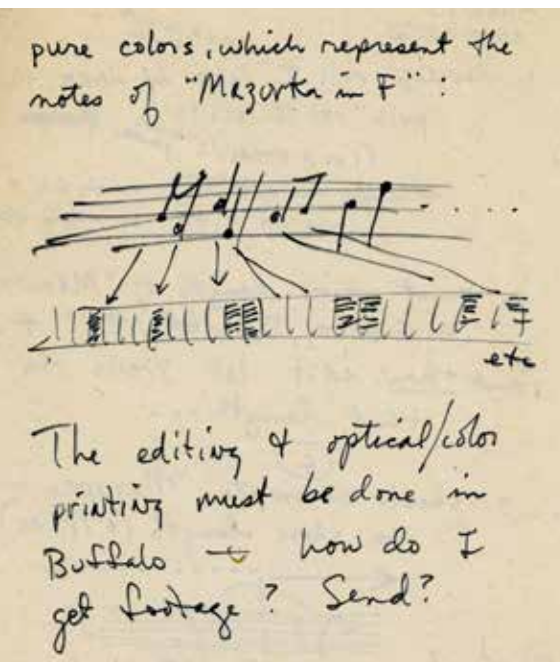 pure colors, which represent the
notes of "Mazurka in F":
etc
The editing & optical/color
printing must be done in
Buffalo — how do I
get footage? Send?